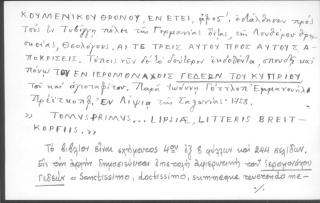 ΚΟΥΜΕΝΙΚΟΥ ΘΡΟΝΟΥ, ΕΝ ΕΤΕΙ, αφος', ἀπεστάλησαν πρὸς
τοὺς ἐν Τυβίγγῃ πόλει τῆς Γερμανίας τῆς Λουθήρου θρη-
σκείας, Θεολόγους. ΑΙ ΤΕ ΤΡΕΙΣ ΑΥΤΟΥ ΠΡΟΣ ΑΥΤΟΥΣ Α-
ΠΟΚΡΙΣΕΙΣ. Τύποις νῦν δὲ τὸ δεύτερον ἐκδοθέντα, σπουδῇ καὶ
πόνῳ ΤΟΥ ΕΝ ΙΕΡΟΜΟΝΑΧΟΙΣ ΓΕΔΕΩΝ ΤΟΥ ΚΥΠΡΙΟΥ
τοῦ καὶ ἁγιοταφίτου. Παρὰ Ἰωάννῃ Γόττλοπ Ἐμμανουὴλ
Πρέιτκοπφ. Ἐν Λιψίᾳ τῆς Σαξωνίας. 1758.
"TOMUS PRIMUS ... LIPSIAE, LITTERIS BREIT-
KOPFIIS."
Τὸ βιβλίον εἶναι σχήματος 4ον ἐξ 8 φύλλων καὶ 244 σελίδων.
Εἰς τὴν ἀρχὴν δημοσιεύεται ἐπιστολὴ ἀφιερωτικὴ τοῦ ἱερομονάχου
Γεδεὼν "Sanctissimo, doctissimo, summeque reverendo me-